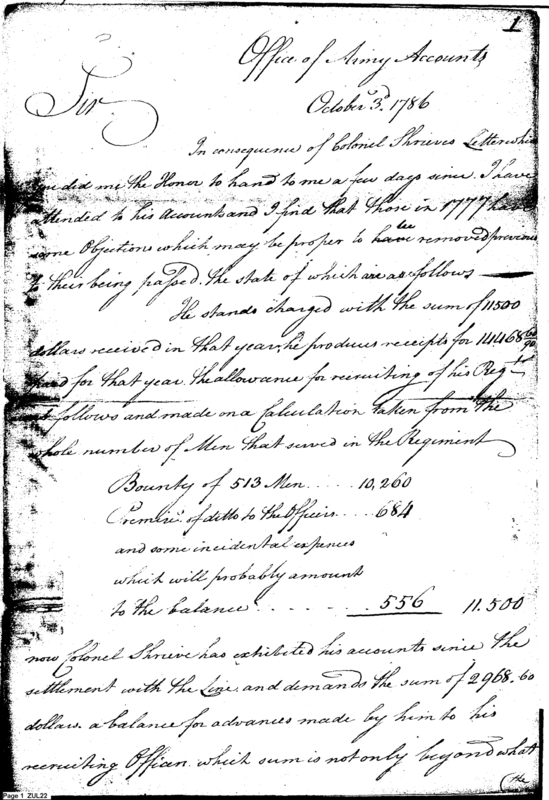 1
Office of Army Accounts
October 3d. 1786
Sir
In consequence of Colonel Shrieves Letter which
you did me the Honor to hand to me a few days since. I have
attended to his Accounts and I find that those in 1777 have
some Objections which may be proper to have be removed previous
to their being passed, the state of which are as follows
He stands charged with the sum of 11500
dollars received in that year, he produces receipts for 14468 60/90
for that year. the allowance for recruiting of his Regt.
as follows and made on a Calculation taken from the
whole number of Men that served in the Regiment
Bounty of 513 Men ..... 10,260
Premim. of ditto to the Officers .... 684
and some incidental expences
which will probably amount
to the balance ....... 556 11.500
now Colonel Shrieve has exhibited his accounts since the
settlement with the Line, and demands the sum of 2968.60
dollars. a balance for advances made by him to his
recruiting Officers. which sum is not only beyond what
the
Page 1 ZUL22